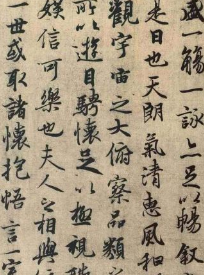 盛一觴一詠亦足以暢叙
是日也天朗氣清惠風和
觀宇宙之大俯察品類
所以遊目騁懷足以極視
娛信可樂也夫人之相與
一世或取諸懷抱悟言一室